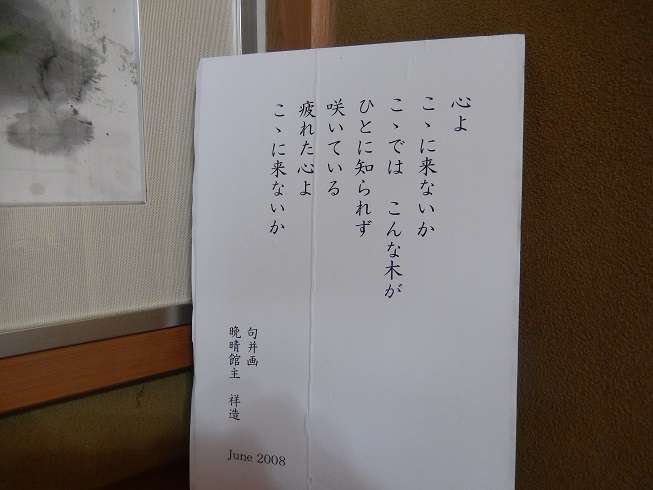 心よ
こゝに来ないか
こゝでは　こんな木が
ひとに知られず
咲いている
疲れた心よ
こゝに来ないか
句井画
晩晴館主　祥造
June 2008